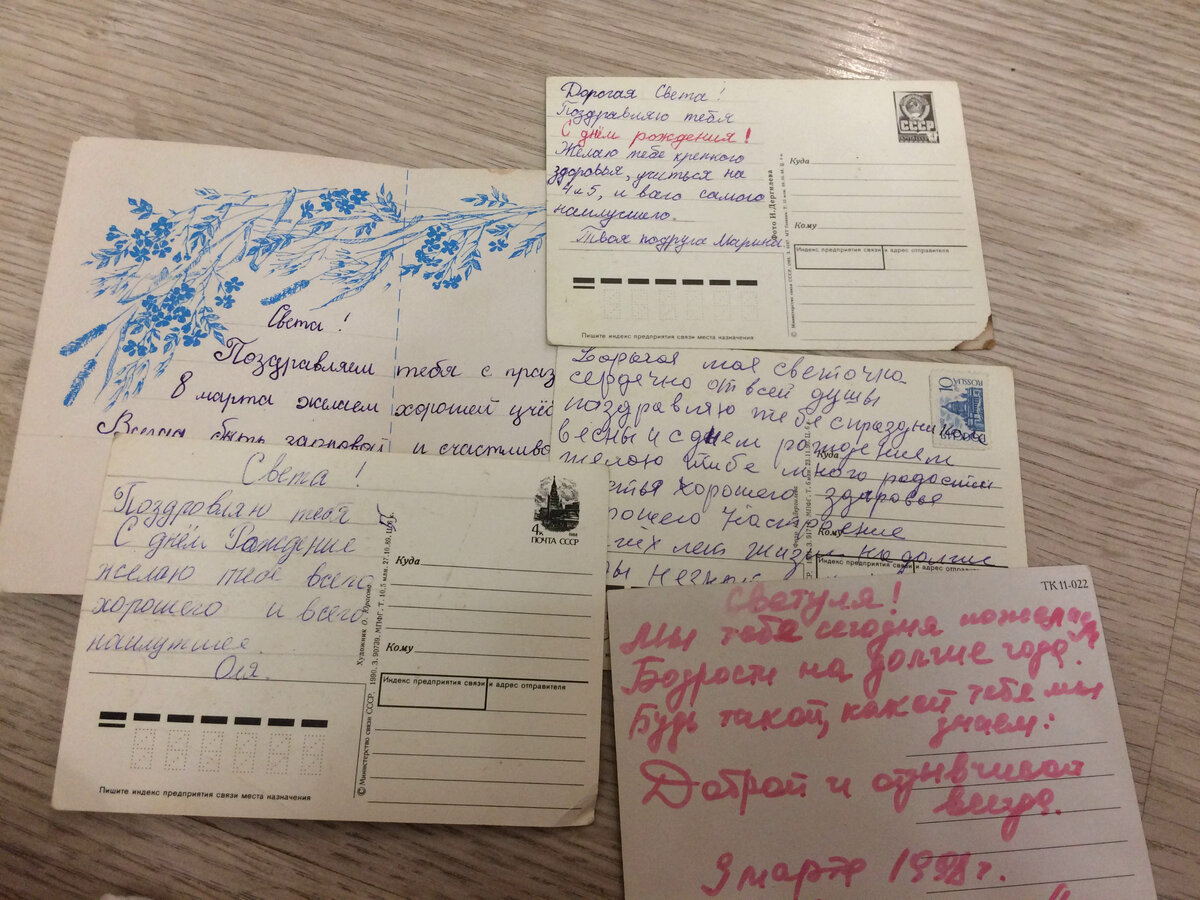 Дорогая Света!
Поздравляю тебя
С днём рождения!
Желаю тебе крепкого
здоровья, учиться на
4 и 5, и всего самого
наилучшего.
Твоя подруга Марина
СССР
Куда
Кому
Индекс предприятия связи и адрес отправителя
Фото И. Дергилева
© Министерство связи СССР
Пишите индекс предприятия связи места назначения
Света!
Поздравляем тебя с праз
8 марта желаем хорошей учё
Всегда быть здоровой и счастливо
моя светочка
сердечно от всей душы
поздравляю тебе с праздни
весны и с днем рождением
желаю тибе много радости
стья хорошего здоровье
орошего настроение
гих лет жизни на долгие
10
ROSSIJA
Куда
Кому
Индекс предприятия связи и адрес отправи
Света!
Поздровляю тебя
С днём Рождение
желаю тебе всего
хорошего и всего
наилутшее.
Оля.
4к
1988
ПОЧТА СССР
Куда
Кому
Индекс предприятия связи и адрес отправителя
Художник О. Юрасова
© Министерство связи СССР, 1990. З. 90739. МПФГ. Т. 10,5 млн. 27.10.89. Ц. 5 к.
Пишите индекс предприятия связи места назначения
ТК 11-022
Светуля!
Мы тебе сегодня пожелаем
Бодрости на долгие года.
Будь такой, какой тебя мы
знаем:
Доброй и отзывчивой
всегда.
9 марта 1998 г.